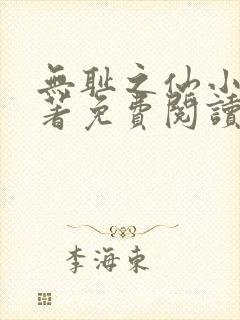 無耻之仙小
著免費閱讀
李海東